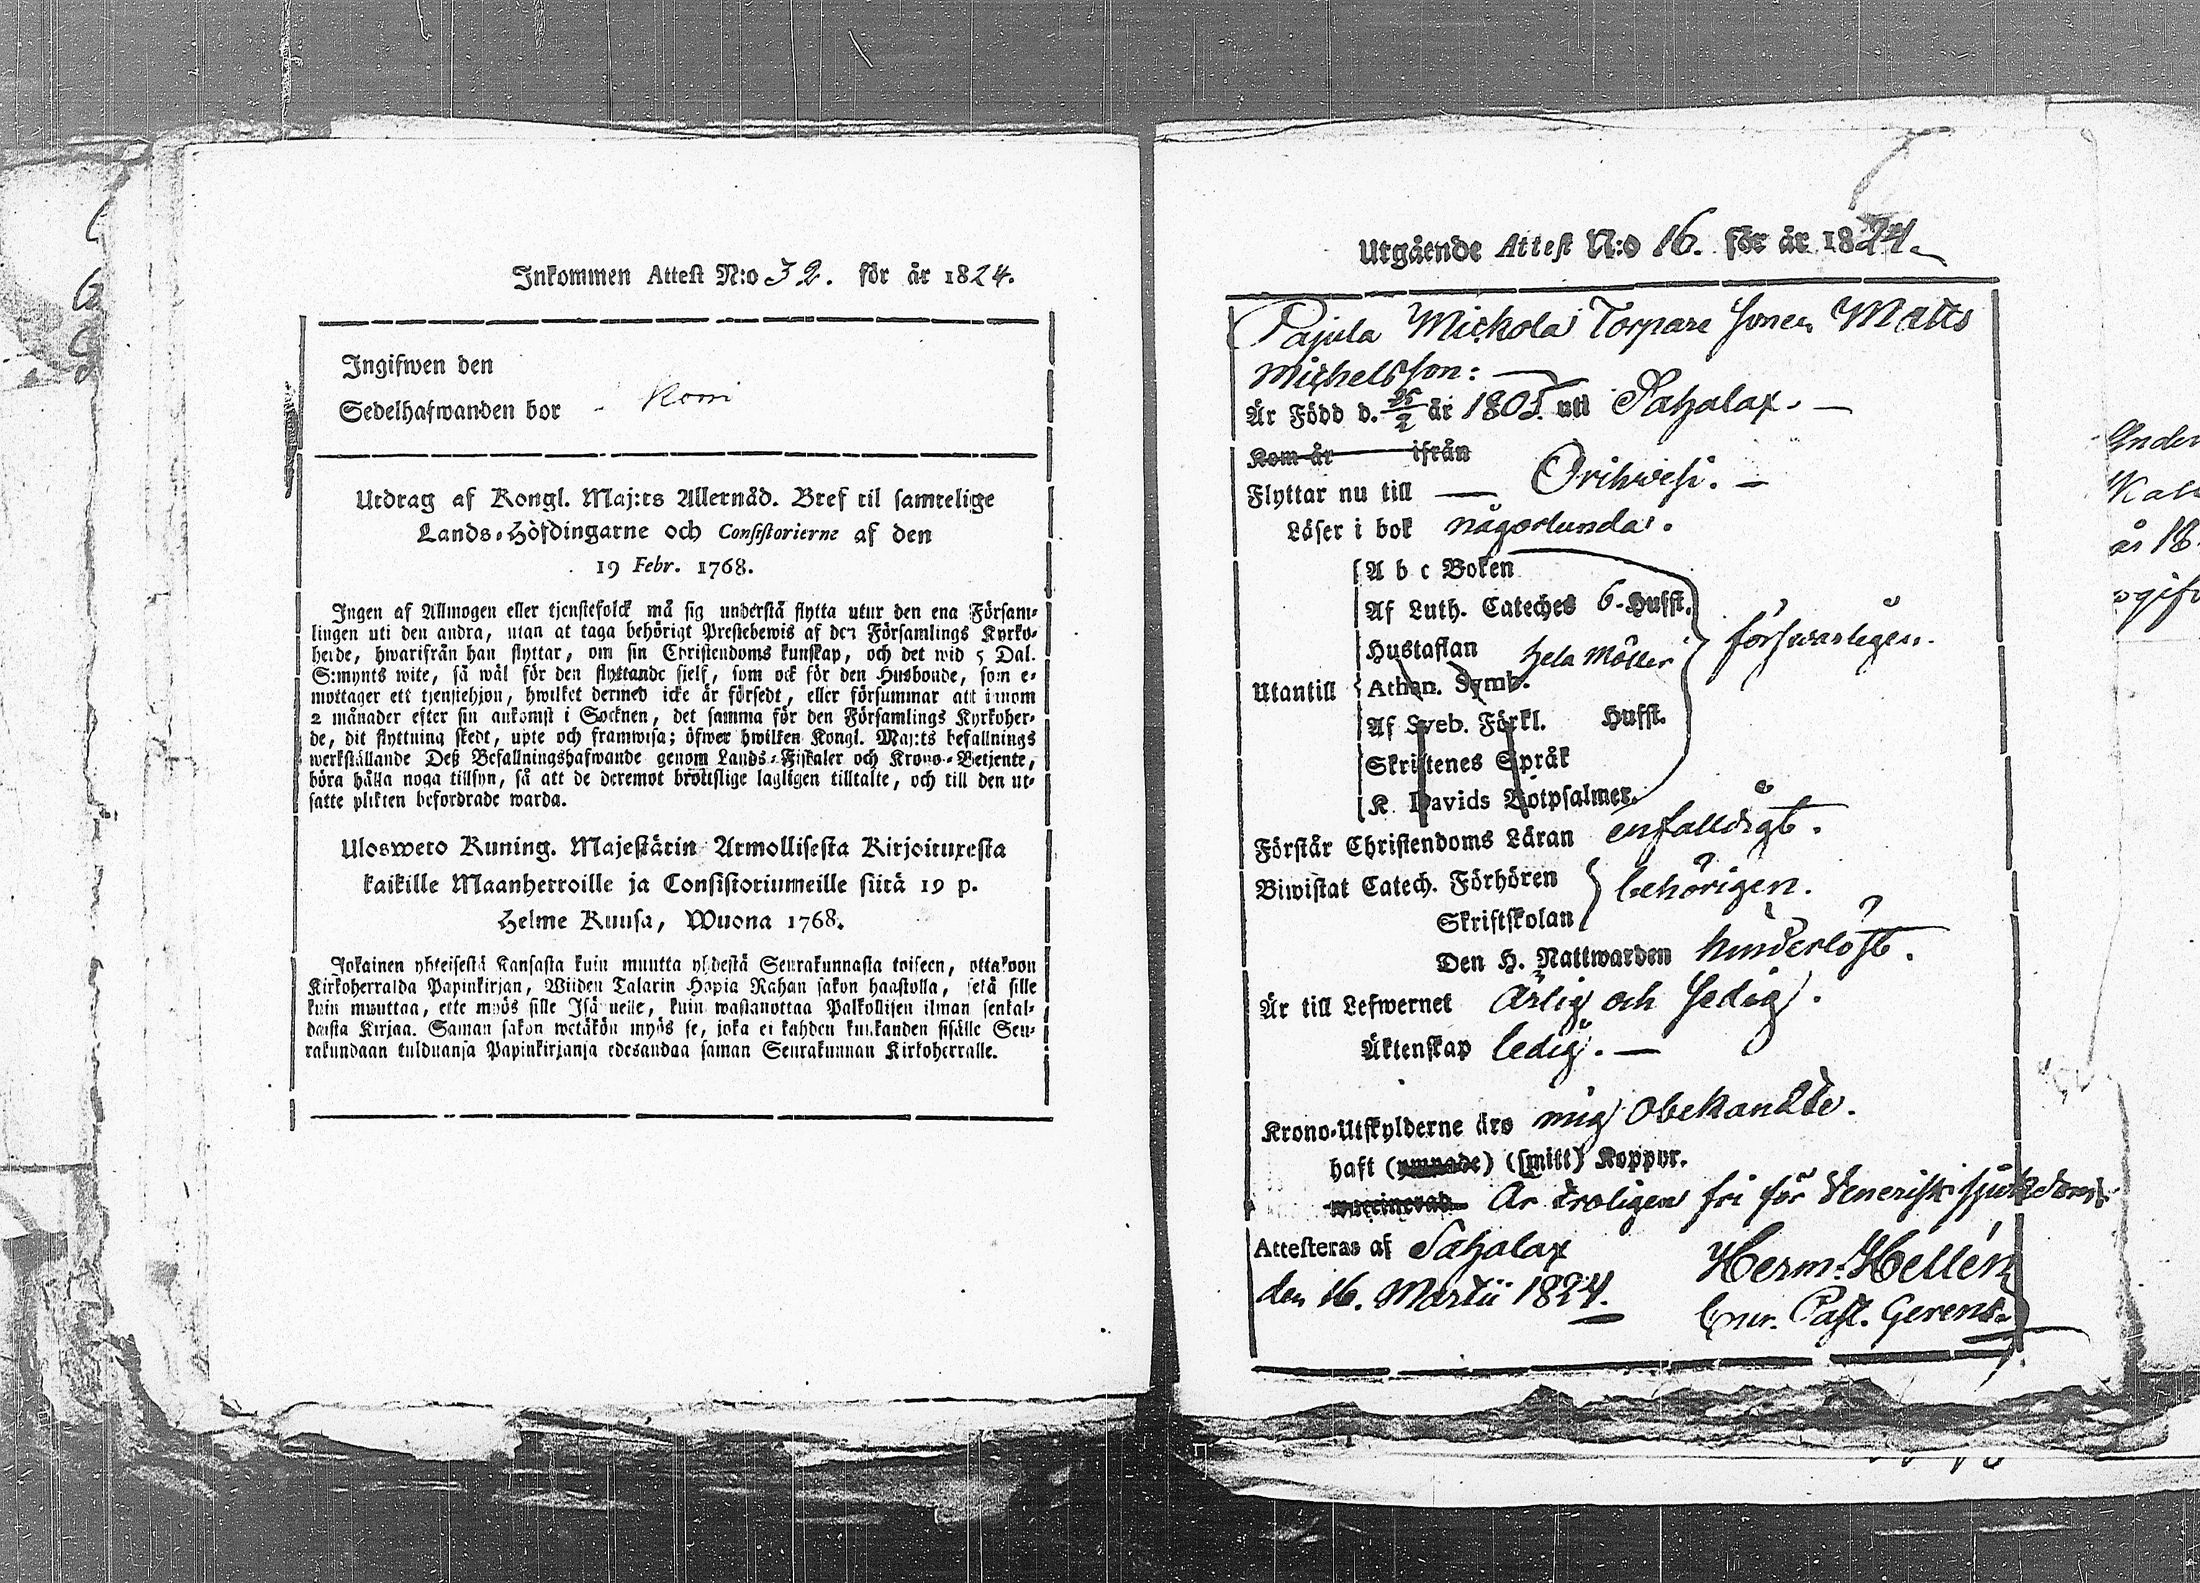 Inkommen Attest N:o 32. för år 1824.
Ingifwen den
Sedelhafwanden bor Koni
Utdrag af Kongl. Maj:ts Allernåd. Bref til samtelige
Lands-Höfdingarne och Consistorierne af den
19 Febr. 1768.
Ingen af Allmogen eller tjenstefolck må sig understå flytta utur den ena Försam-
lingen uti den andra, utan at taga behörigt Prestebewis af den Församlings Kyrko-
herde, hwarifrån han flyttar, om sin Christendoms kunskap, och det wid 5 Dal.
S:mynts wite, så wäl för den flyttande sielf, som ock för den Husbonde, som e-
mottager ett tjenstehjon, hwilket dermed icke är försedt, eller försummar att innom
2 månader efter sin ankomst i Socknen, det samma för den Församlings Kyrkoher-
de, dit flyttning skedt, upte och framwisa; öfwer hwilken Kongl. Maj:ts befallnings
werkställande Deß Befallningshafwande genom Lands-Fiskaler och Krono-Betjente,
böra hålla noga tillsyn, så att de deremot brottslige lagligen tilltalte, och till den ut-
satte plikten befordrade warda.
Ulosweto Kuning. Majestätin Armollisesta Kirjoituxesta
kaikille Maanherroille ja Consistoriumeille siitä 19 p.
Helme Kuusa, Wuona 1768.
Jokainen yhteisestä Kansasta kuin muutta yhdestä Seurakunnasta toiseen, ottakoon
Kirkoherralda Papinkirjan, Wiiden Talarin Hopia Rahan sakon haastolla, sekä sille
kuin muuttaa, ette myös sille Isännelle, kuin wastanottaa Palkollisen ilman senkal-
daista Kirjaa. Saman sakon wetäkön myös se, joka ei kahden kuukanden sisälle Seu-
rakundaan tulduansa Papinkirjansa edesandaa saman Seurakunnan Kirkoherralle.
Utgående Attest N:o 16. för år 1824.
Pajula Mickola Torpare Sonen Matts
Michelsson:
Är Född d. 25/2 år 1805. uti Sahalax.
Kom år ifrån
Flyttar nu till Orihwesi.
Läser i bok någorlunda.
A b c Boken
Af Luth. Cateches 6 Hufst.
Hustaflan hela Möller försvarligen.
Utantill Athan. Symb.
Af Sveb. Förkl. Hufst.
Skriftenes Språk
K Davids Botpsalmer.
Förstår Christendoms Läran enfalldigt.
Biwistat Catech. Förhören behörigen.
Skriftskolan
Den H. Nattwarden hinderlöst.
Är till Lefwernet Ärlig och Sedig.
Äktenskap ledig.
Krono-Utskylderne äro mig obekandte.
haft (ympade) (smitt) Koppor.
waccinerad Är troligen fri för Venerisk sjukdom.
Attesteras af Sahalax Herm. Hellén
den 16. Martii 1824. Cur. Past. Gerens.